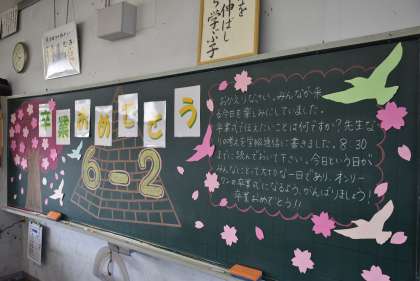 を
伸ばし
ら学ぶ子
卒業おめでとう
6-2
おかえりなさい。みんなが来
る今日を楽しみにしていました。
卒業式で伝えたいことは何ですか？先生な
りの考えを学級通信に書きました。8:30
までに読んでおいて下さい。今日という日が
みんなにとって大切な一日であり、オンリー
ワンの卒業式になるよう、がんばりましょう！
卒業おめでとう!!